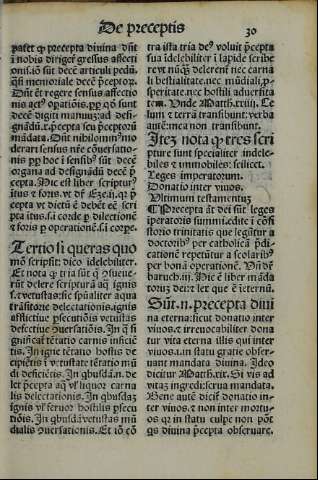 De preceptis
30
patet qͥ precepta diuina dn̄t
ī nobis dirigere gressus affecti
onis.iō sūt decē articuli pedū.
qͥsi memoriale decē p̄ceptorū.
Dn̄t ēt regere sensus affectio
nis actꝰ opatiōis.ꝓp̄ qō sunt
decē digiti manuū:ad desi
gnādū.x.p̄cepta seu p̄ceptorū
mādata. Dn̄t nihilominꝰ mo
derari sensus nr̄e cōuersatio
nis ꝓp̄ hoc ī sensibꝰ sūt decē
organa ad designādū decē p̄
cepta. Hic est liber scripturꝰ
ītus ⁊ foris.vt dr̄ Eze.ij.qꝛ p̄
cepta vt dictū ē debēt eē scri
pta ītus.s.ī corde ꝑ dilectionē
⁊ foris ꝑ operationē.s.ī corpe.
Tertio si queras quo
mō scripsit: dico idelebiliter.
Et nota qͥ tria sūt q̄ ꝯsueue
rūt delere scripturā aq̄ ignis
⁊ vetustas: sic spūaliter aqua
trāsitorie delectationis.ignis
afflictiue ꝑsecutiōis vetustas
defectiue ꝯuersatiōis. In q̄ si
gnificat tētatio carnis incēti
tis. In igne tētatio hostis de
cipiētis ī vetustate tētatio mū
di deficiētis. In qͥbusdā.n. de
let p̄cepta aq̄ vl' liquor carna
lis delectationis. In qͥbusdaꝫ
ignis vl' feruor hostilis psecu
tiōis. In qͥbusdā vetustas mū
dialis ꝯuersationis. Et iō cō
tra ista tria deꝰ voluit p̄cepta
sua idelebiliter ī lapide scribe
re vt nūqͣꝫ delerent nec carna
li bestialitate.nec mūdiali.p
speritate.nec hostili aduersita
tem. Vnde Matth.xxiiij. Ce
lum ⁊ terra transibunt: verba
autē: mea non transibunt.
Iteꝫ nota qͥ tres scri
pture sunt specialiter indele
biles ⁊ immobiles: scilicet.
Leges imperatorum.
Donatio inter viuos.
Vltimum testamentuꝫ
Precepta āt dei sūt leges
īperatorīs summi.edite ī consi
storio trinitatis que legūtur a
doctoribꝰ per catholicā p̄di
cationē repetūtur a scolaribꝰ
per bonā operationē. Vn̄ dr̄
baruch.iij. Hic ē liber māda
toruꝫ dei: ⁊ lex que ē ī eternū.
Sūt.n.precepta diui
na eterna: sicut donatio inter
viuos.⁊ irreuocabiliter dona
tur vita eterna illis qui inter
viuos.a. in statu gratie obser
uant mandata diuina. Ideo
dicitur Matth.xix. Si vis ad
vitaꝫ ingredi: serua mandata.
Bene autē dicit donatio in
ter viuos.⁊ non inter mortu
os qꝛ in statu culpe non pōt
qͥs diuina p̄cepta obseruare.